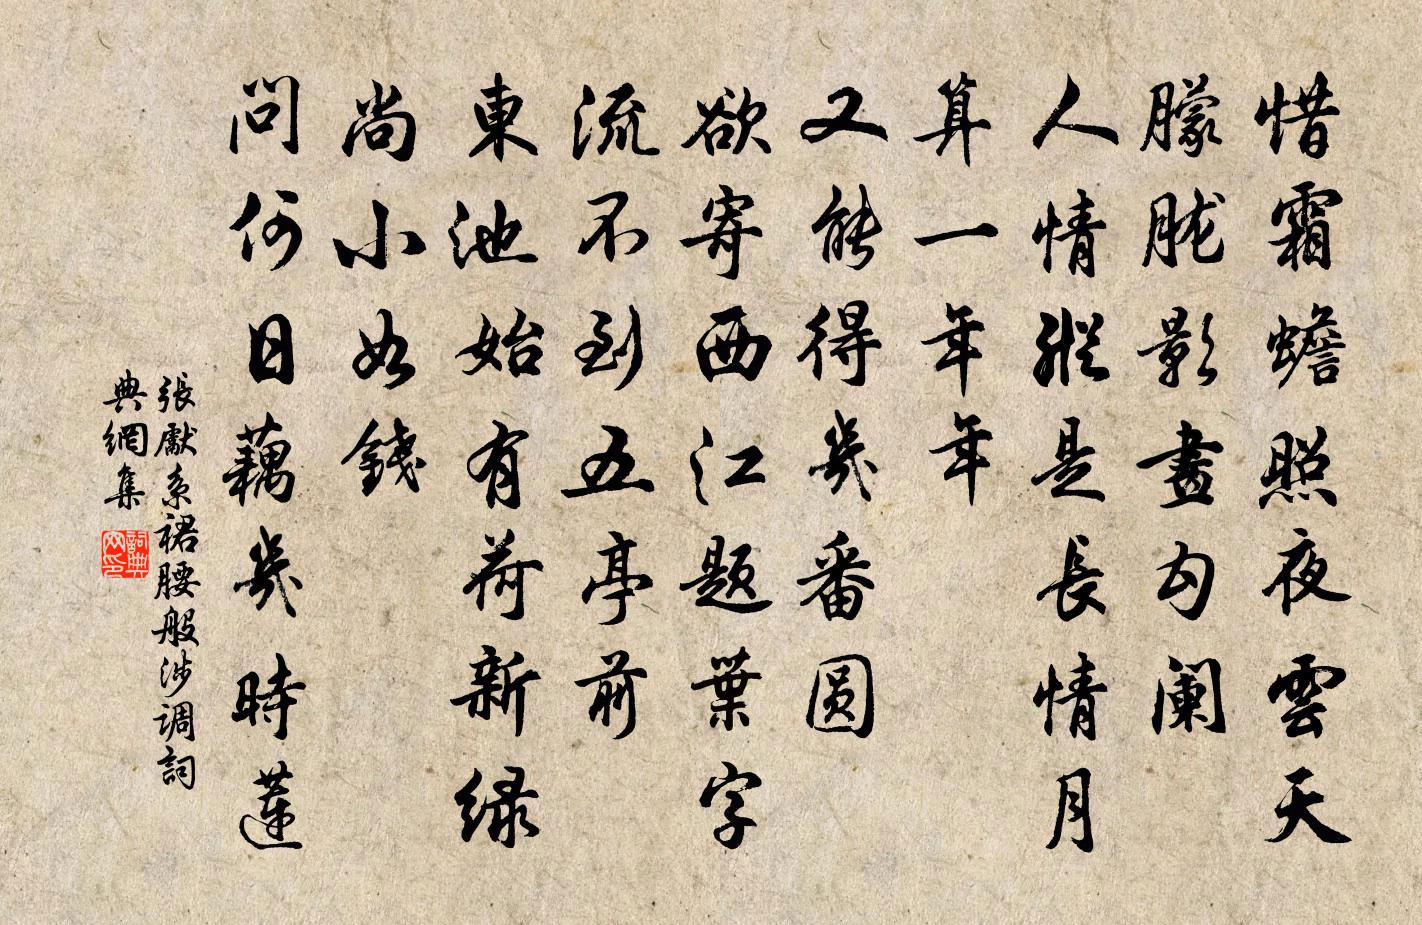 惜霜蟾照夜雲天
朦胧影畫勾阑
人情縱是長情月
算一年年
又能得幾番圓
欲寄西江题葉字
流不到五亭前
東池始有荷新綠
尚小如錢
問何日藕幾時蓮
張獻系裙腰般涉調詞
典網集
詞典
网印